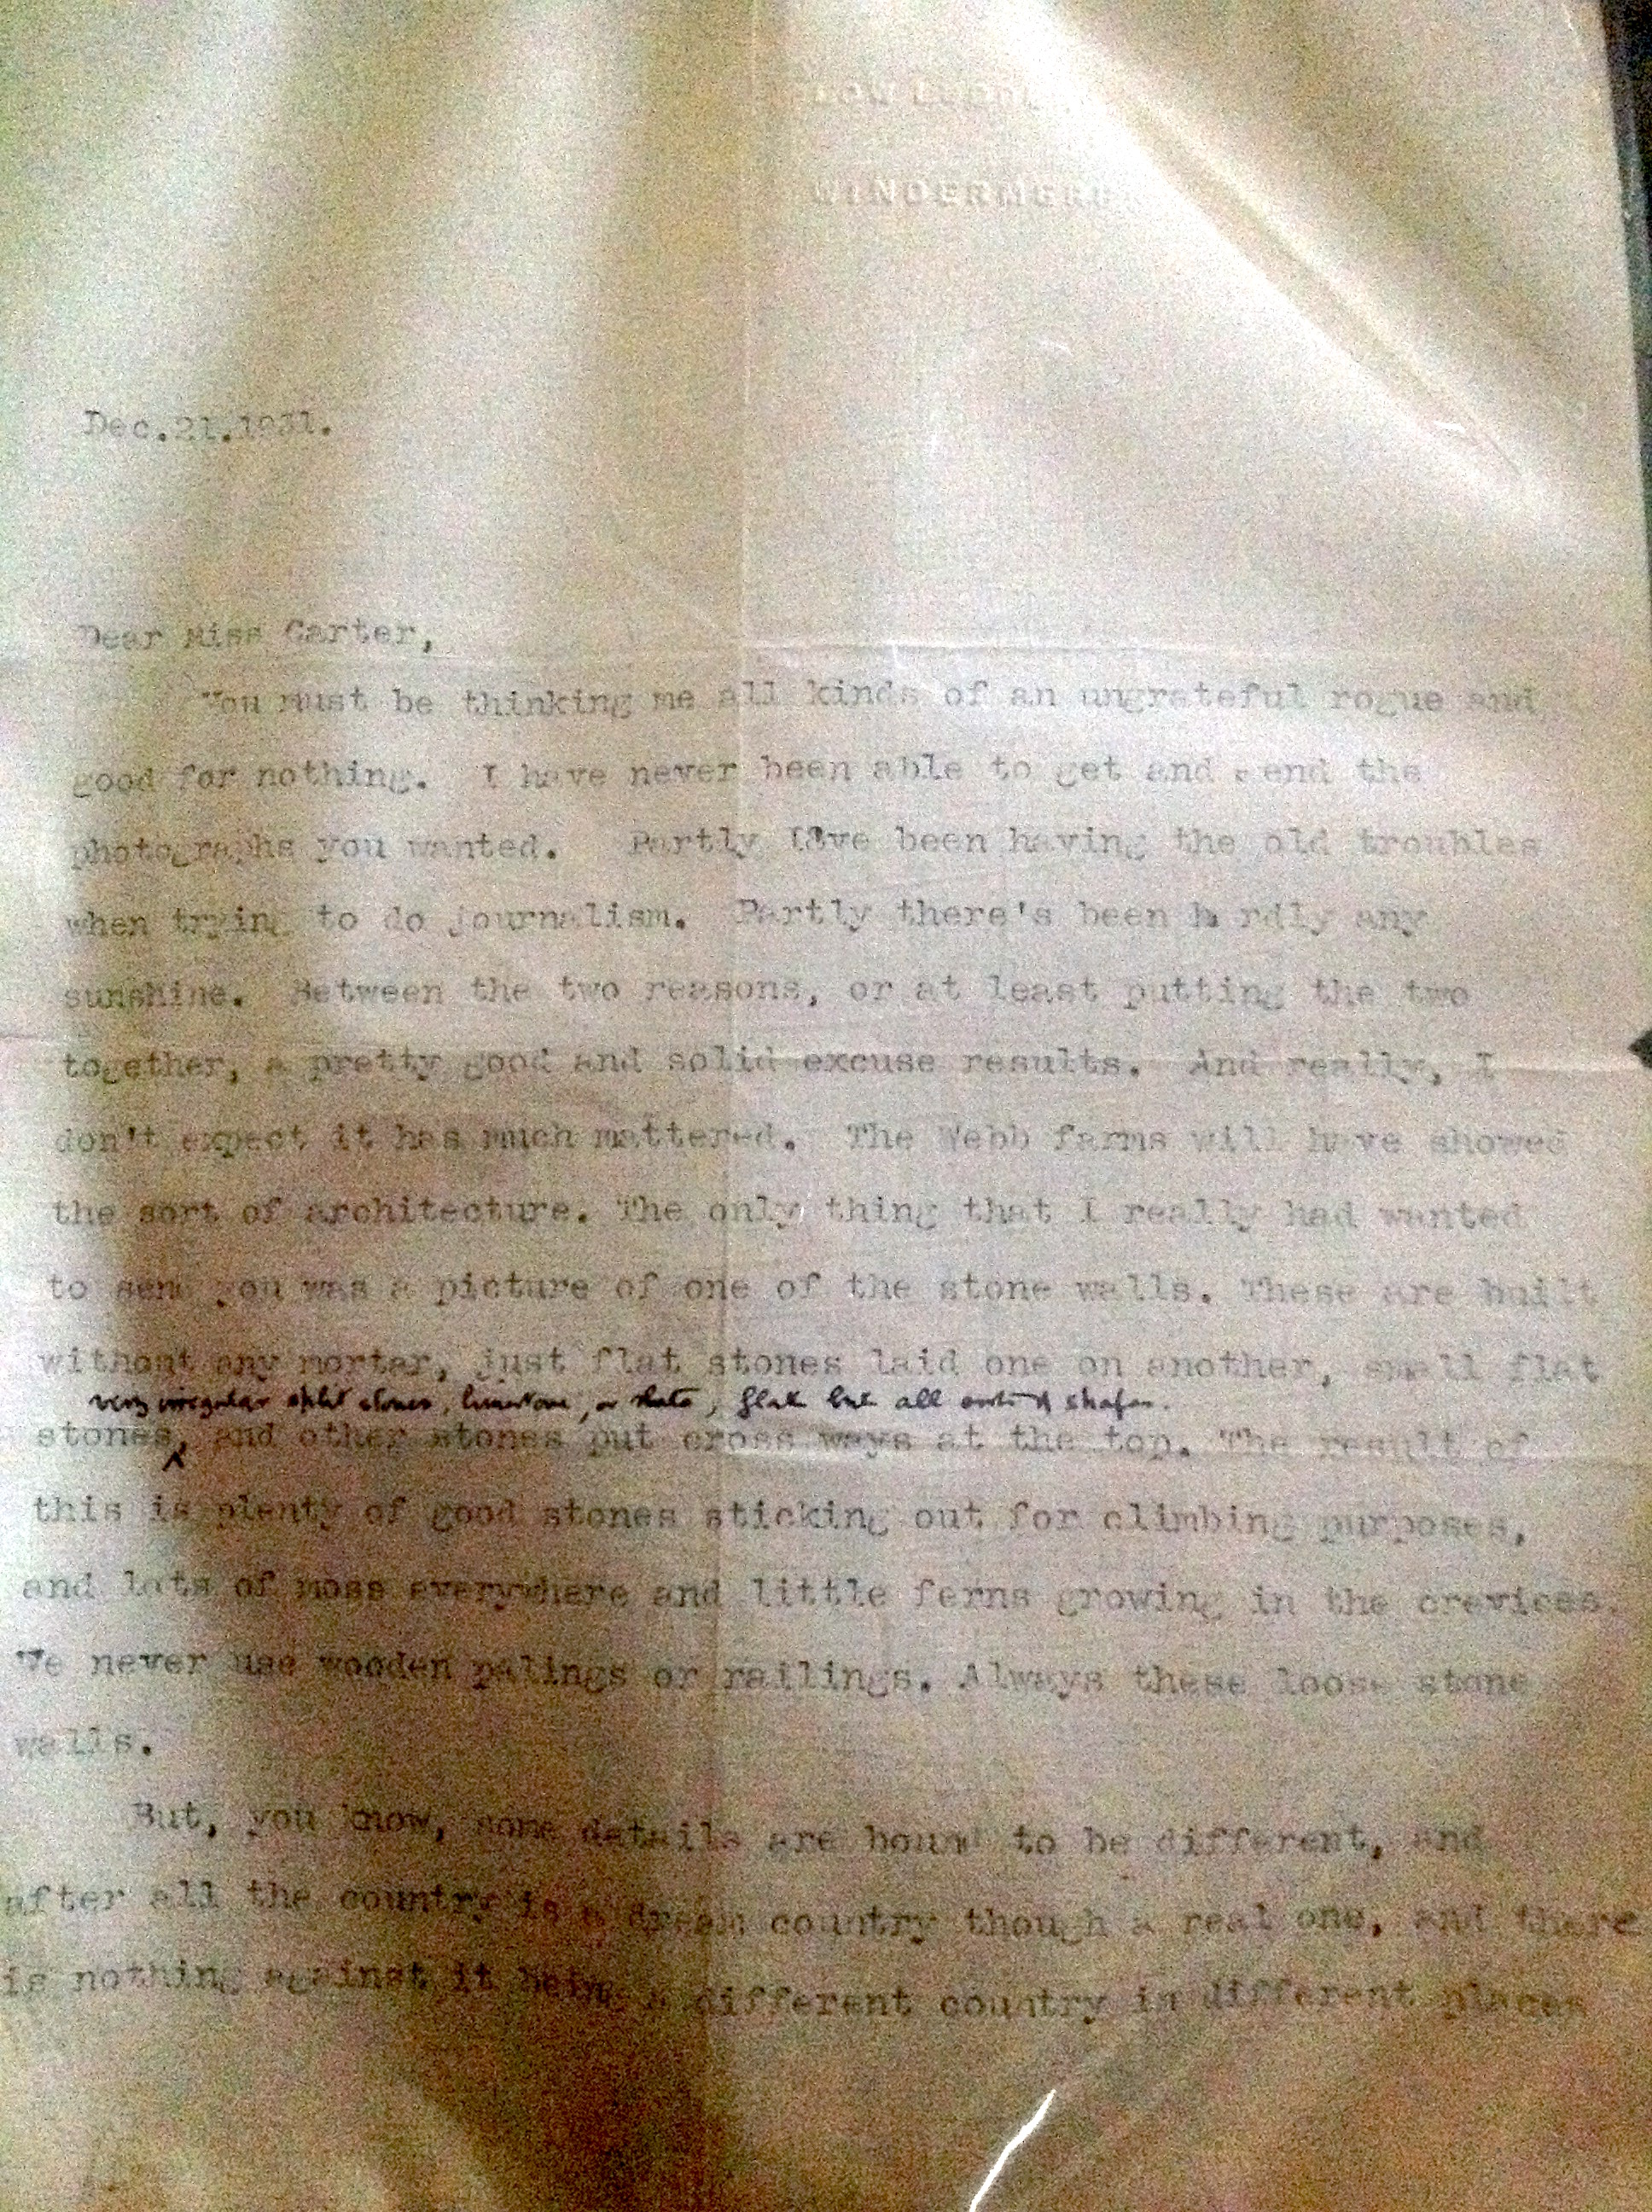 LOW LUDDE
WINDERMERE
Dec.21.1931.
Dear Miss Carter,
You must be thinking me all kinds of an ungrateful rogue and
good for nothing. I have never been able to get and send the
photographs you wanted. Partly I've been having the old troubles
when trying to do journalism. Partly there's been h rdly any
sunshine. Between the two reasons, or at least putting the two
together, a pretty good and solid excuse results. And really, I
don't expect it has much mattered. The Webb farms will have showed
the sort of architecture. The only thing that I really had wanted
to send you was a picture of one of the stone walls. These are built
without any mortar, just flat stones laid one on another, small flat
very irregular split stones, limestone, or slate, flat but all sorts of shapes.
stones, and other stones put cross ways at the top. The result of
this is plenty of good stones sticking out for climbing purposes,
and lots of moss everywhere and little ferns growing in the crevices.
We never use wooden palings or railings. Always these loose stone
walls.
But, you know, some details are bound to be different, and
after all the country is a dream country though a real one, and there
is nothing against it being a different country in different places